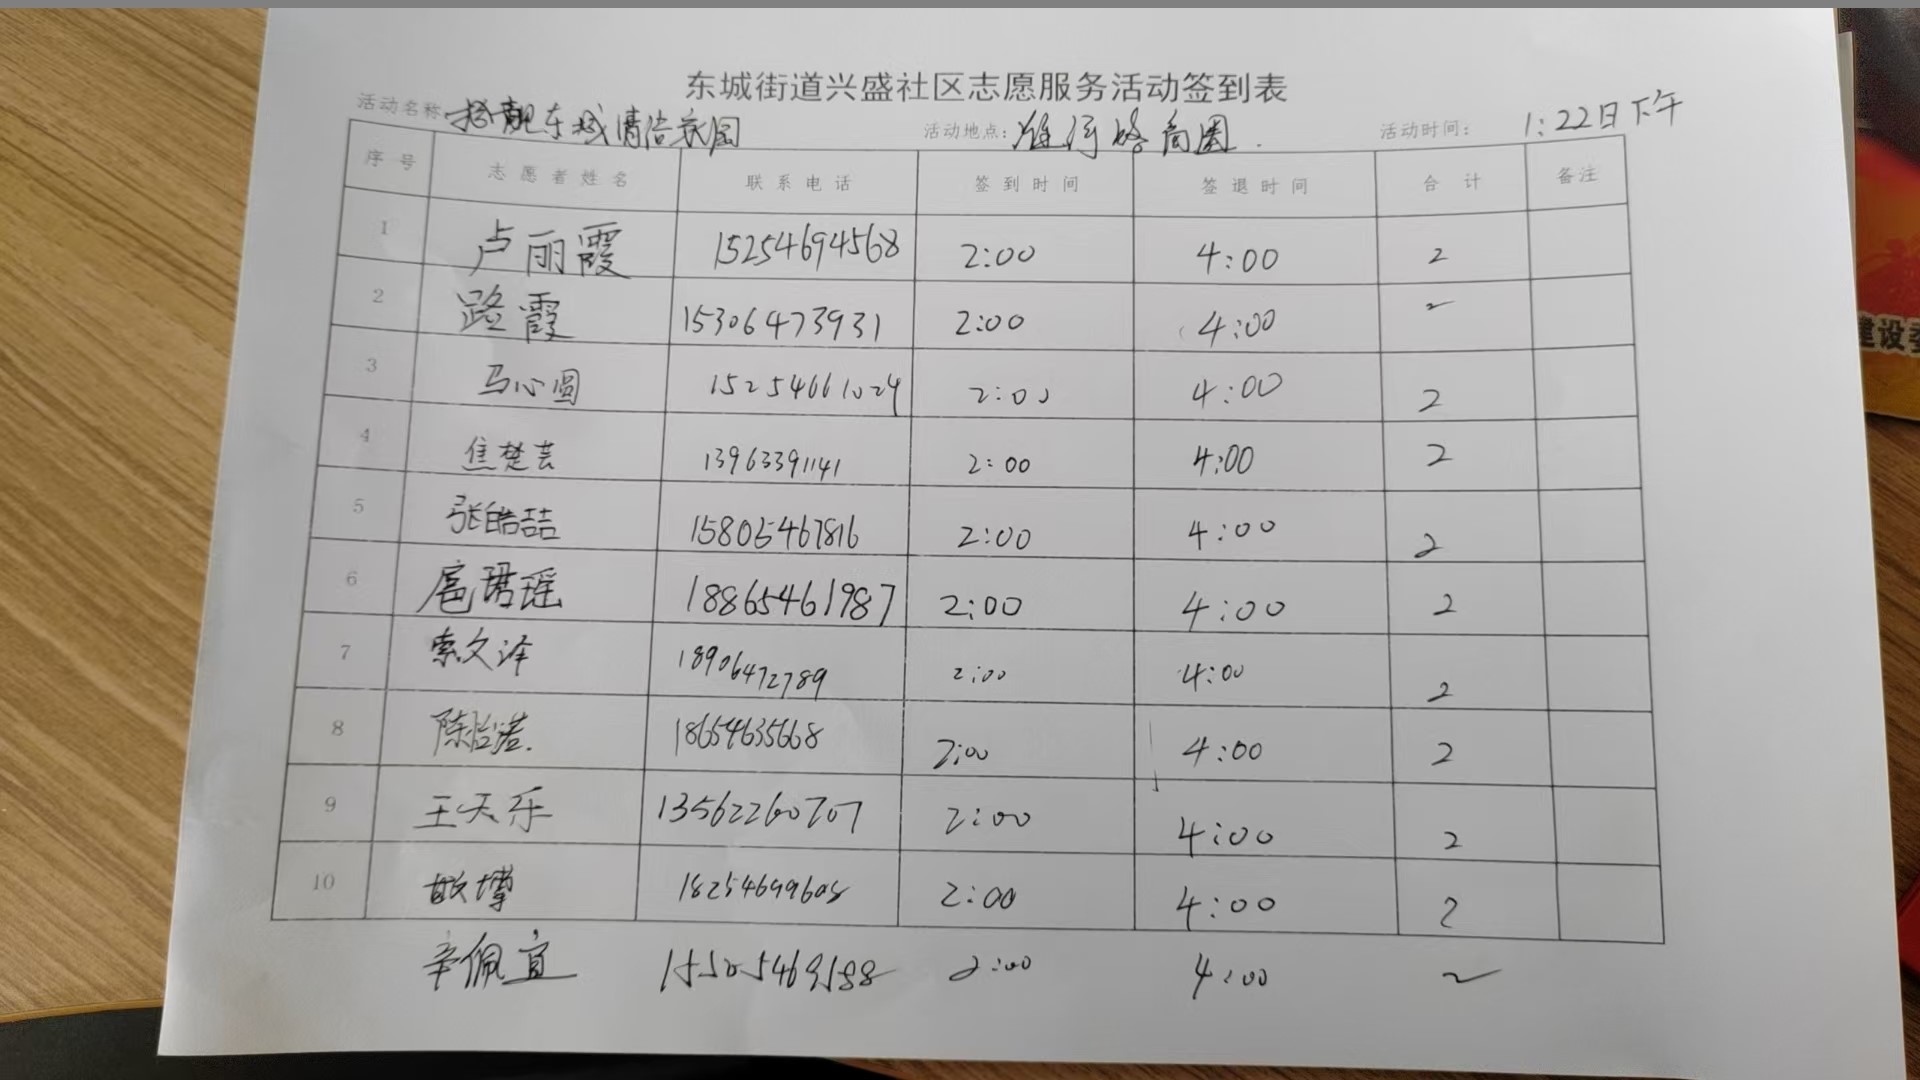 东城街道兴盛社区志愿服务活动签到表
活动名称 扮靓东城清洁家园 活动地点: 淮河路商圈. 活动时间: 1:22日下午
序号 志愿者姓名 联系电话 签到时间 签退时间 合计 备注
1 卢丽霞 15254694568 2:00 4:00 2
2 路霞 15306473931 2:00 4:00 2
3 马心圆 15254661029 2:00 4:00 2
4 焦楚芸 13963391141 2:00 4:00 2
5 张皓喆 15805467816 2:00 4:00 2
6 扈珺瑶 18865461987 2:00 4:00 2
7 索文泽 18906472789 2:00 4:00 2
8 陈怡诺. 18654635668 2:00 4:00 2
9 王天乐 13562260707 2:00 4:00 2
10 18254699608 2:00 4:00 2
辛佩宜 2:00 4:00 2
建设委